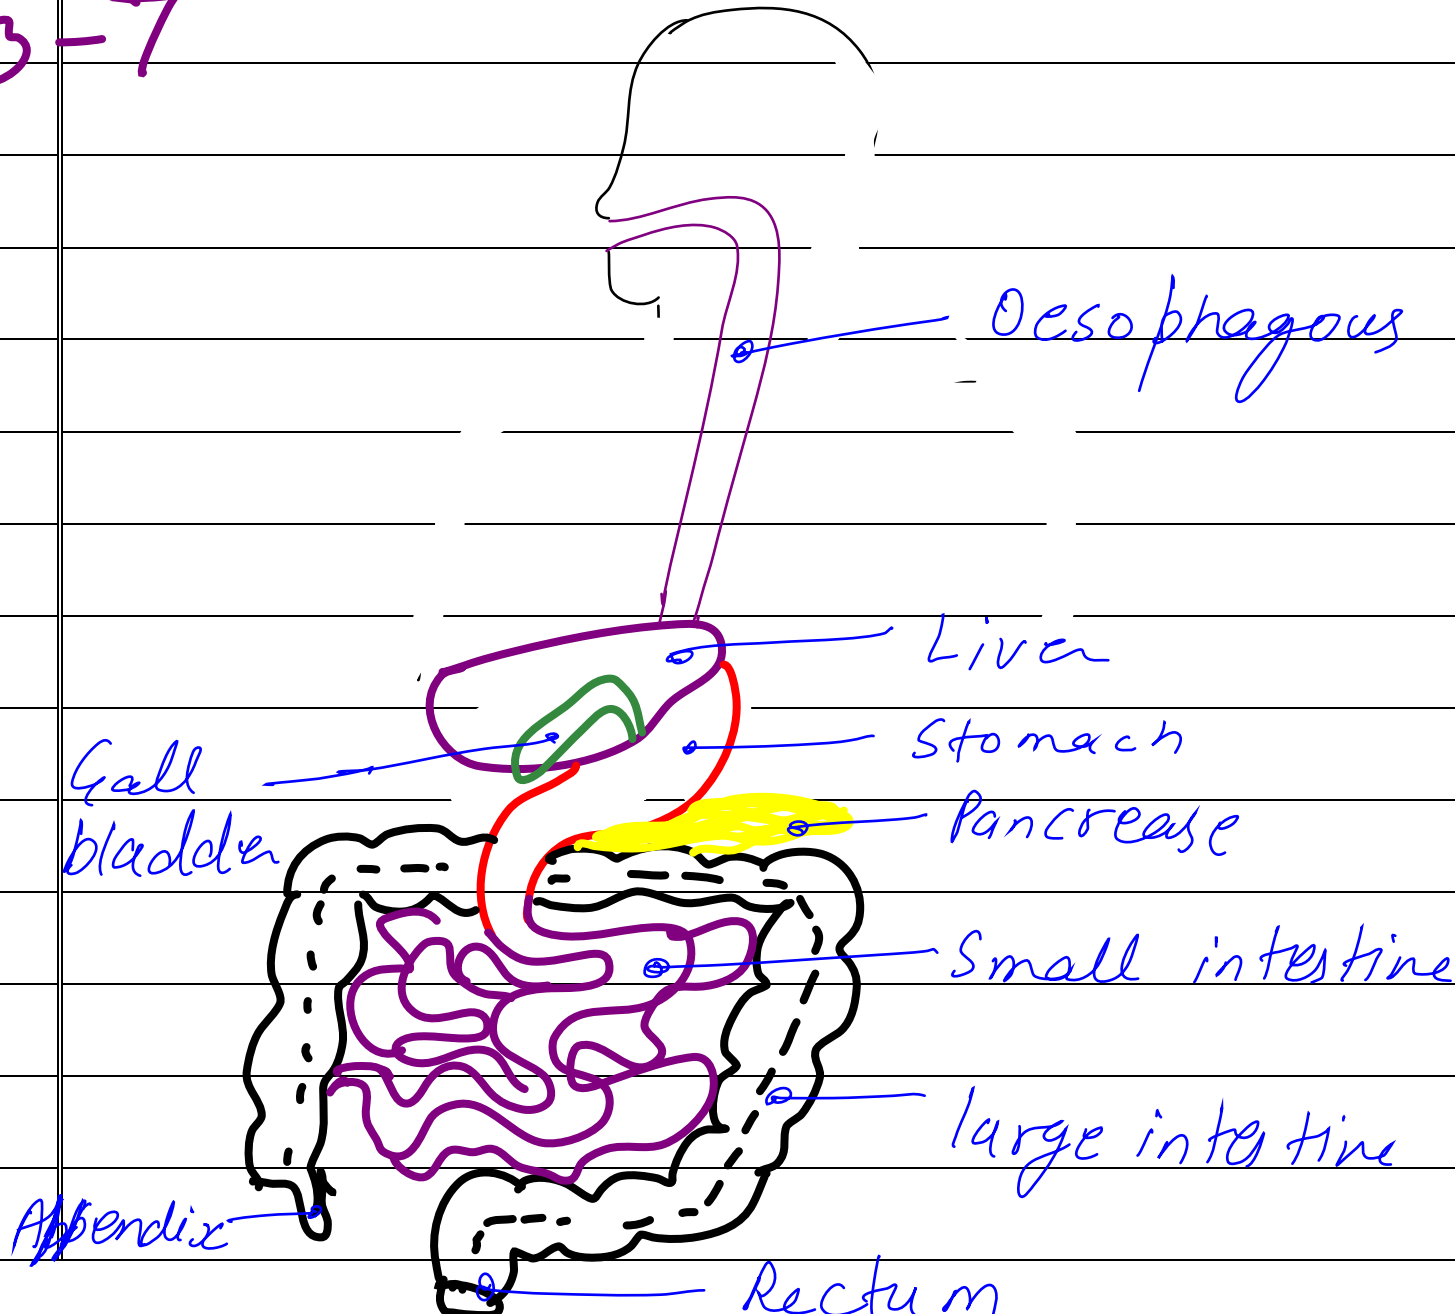 3-7
Oesophagous
Liver
Stomach
Gall
bladder
Pancrease
Small intestine
large intestine
Appendix
Rectum